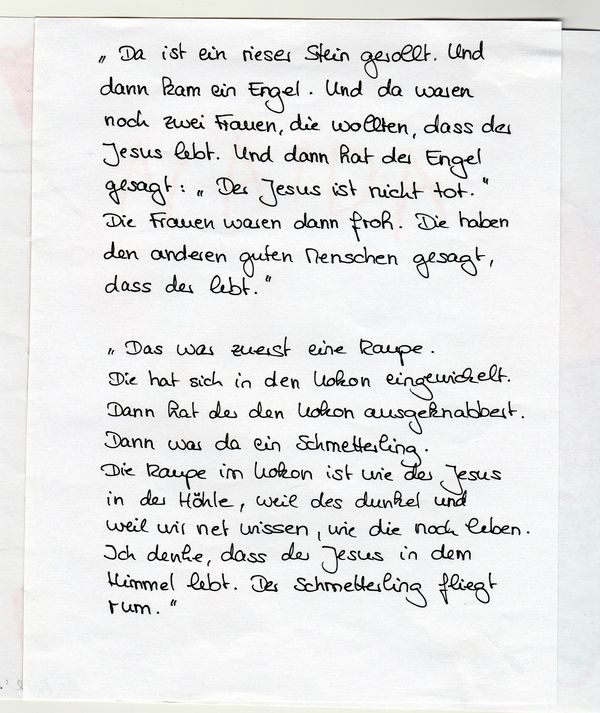 „Da ist ein rieser Stein gerollt. Und
dann kam ein Engel. Und da waren
noch zwei Frauen, die wollten, dass der
Jesus lebt. Und dann hat der Engel
gesagt: „Der Jesus ist nicht tot."
Die Frauen waren dann froh. Die haben
den anderen guten Menschen gesagt,
dass der lebt."
„Das war zuerst eine Raupe.
Die hat sich in den Kokon eingewickelt.
Dann hat der den Kokon ausgeknabbert.
Dann war da ein Schmetterling.
Die Raupe im Kokon ist wie der Jesus
in der Höhle, weil des dunkel und
weil wir net wissen, wie die noch leben.
Ich denke, dass der Jesus in dem
Himmel lebt. Der Schmetterling fliegt
rum."